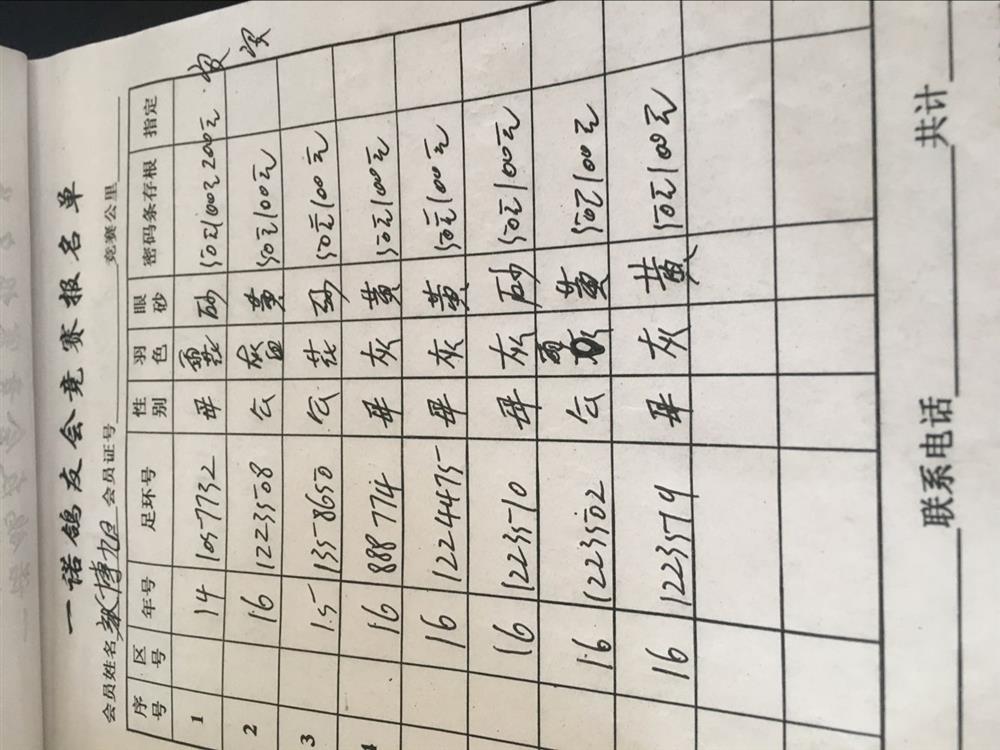 一诺鸽友会竞赛报名单
会员姓名 会员证号 竞赛公里
序号 区号 年号 足环号 性别 羽色 眼砂 密码条存根 指定
1 14 1057732 母 雨花 砂 50元100元200元
2 16 1223508 公 灰 黄 50元100元
3 15 1358650 公 花 砂 50元100元
4 16 888774 母 灰 黄 50元100元
16 1224475 母 灰 黄 50元100元
16 1223510 母 灰 砂 50元100元
16 1223502 公 黄 50元100元
16 1223519 母 灰 黄 50元100元
联系电话 共计